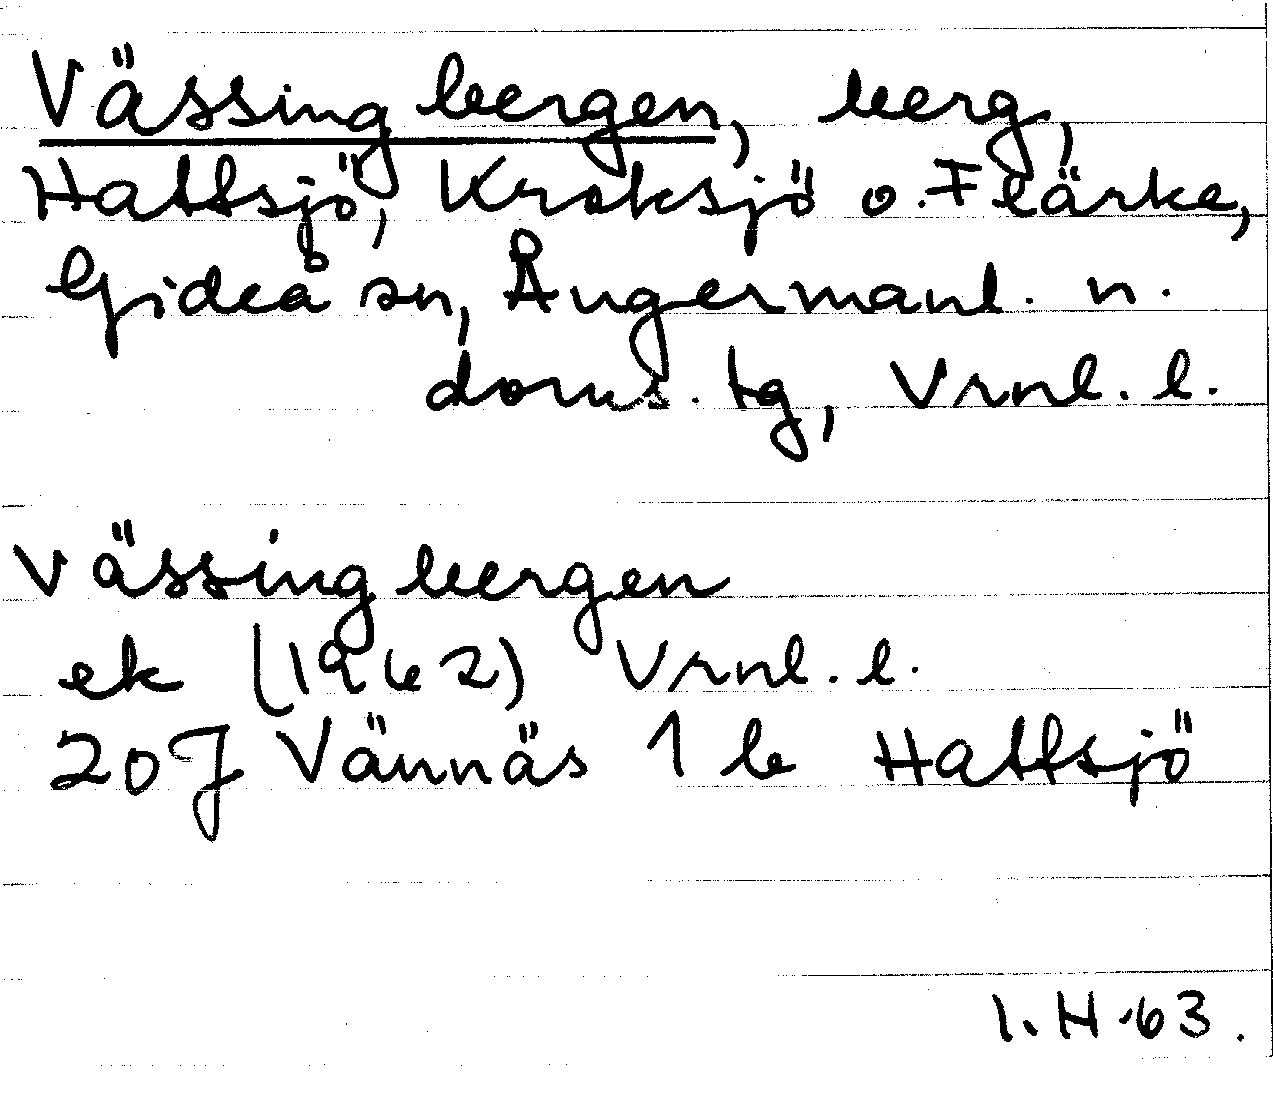 Vässingbergen, berg,
Hattsjö, Kroksjö o. Flärke,
Gideå sn, Ångermanl. n.
doms. tg, Vrnl. l.
Vässingbergen
ek (1962) Vrnl. l.
20J Vännäs 1 b Hattsjö
I. H -63.